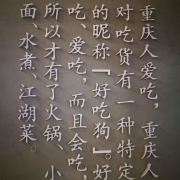 重庆人爱吃，重庆人
对吃货有一种特定
的昵称『好吃狗』。好
吃、爱吃，而且会吃，
所以才有了火锅、小
面、水煮、江湖菜。